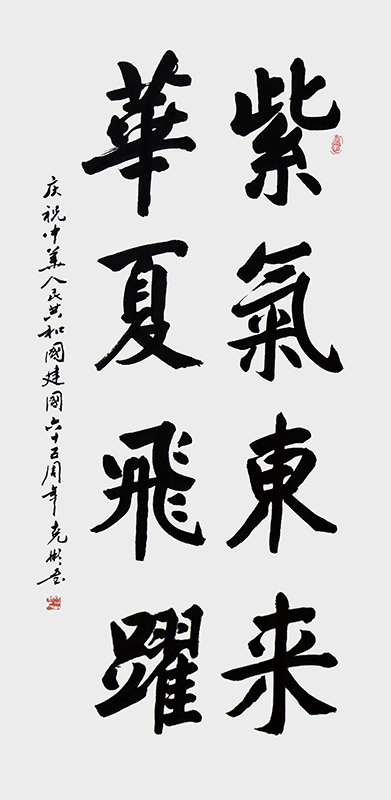 紫氣東来
華夏飛躍
庆祝中華人民共和國建國六十五周年克彬書